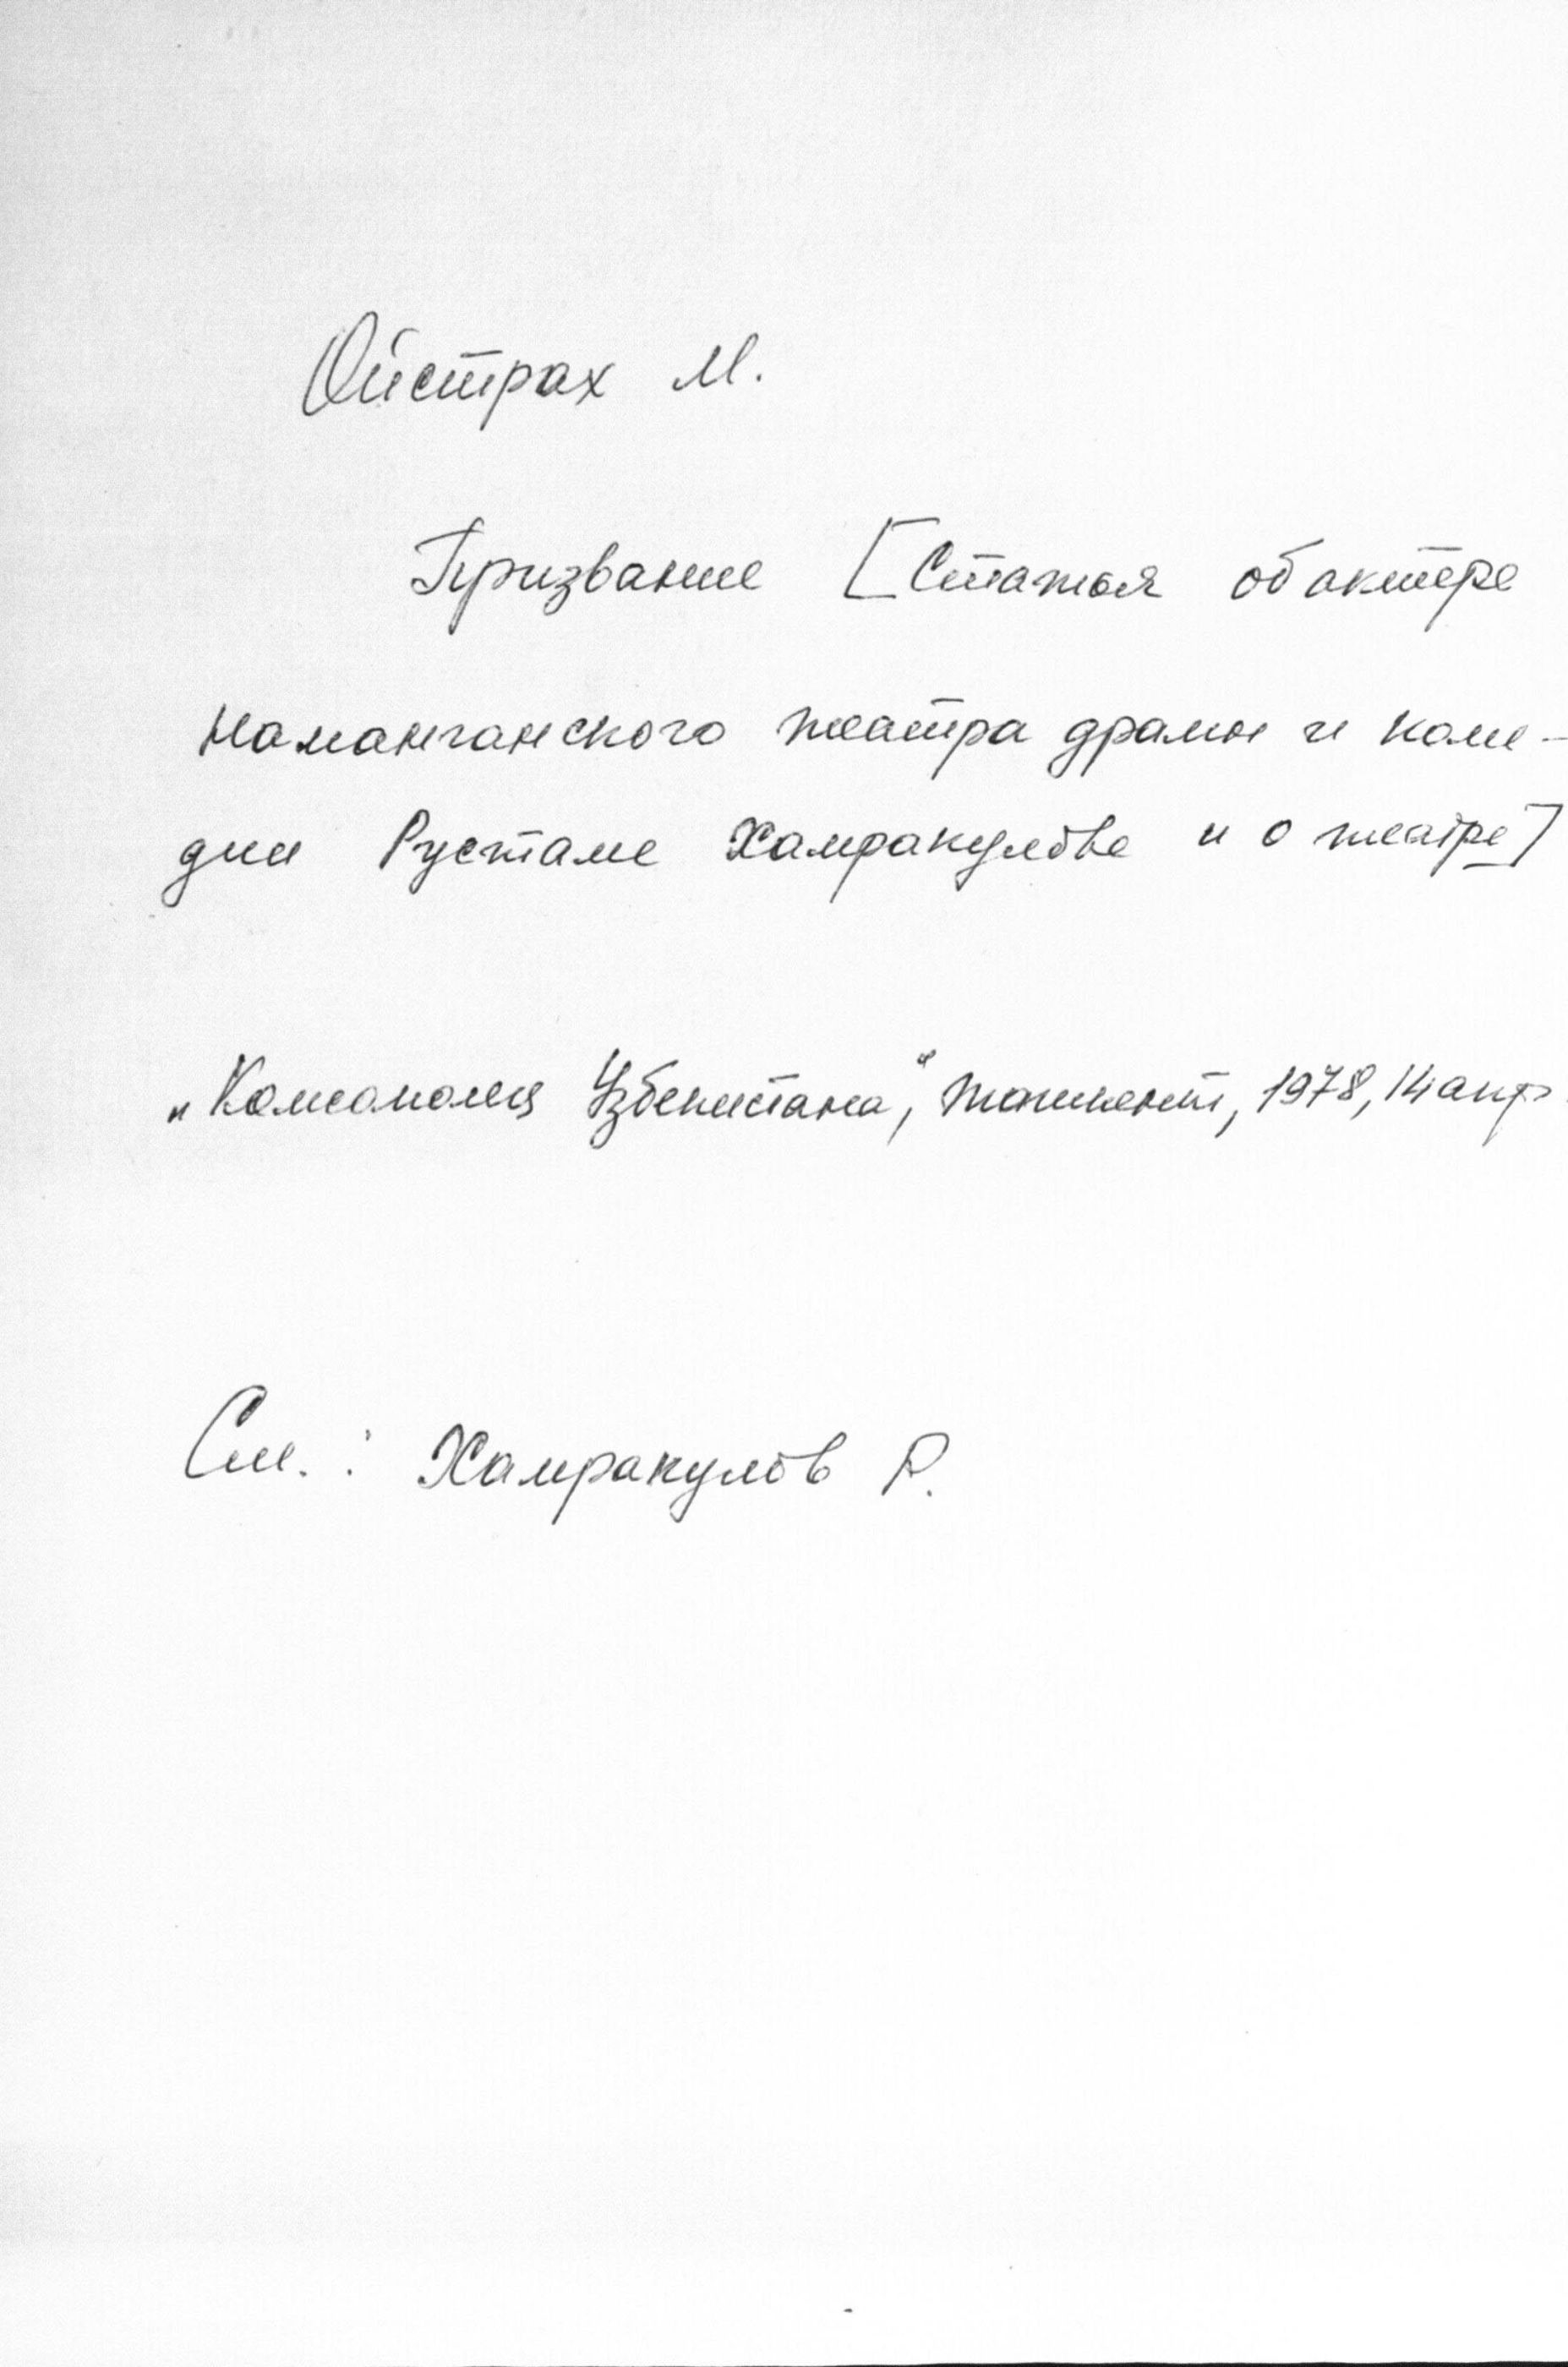 Ойстрах М.
Призвание [Статья об актере
Наманганского театра драмы и коме-
дии Рустаме Хамракулове и о театре]
„Комсомолец Узбекистана", Ташкент, 1978, 14 апр.
См.: Хамракулов Р.